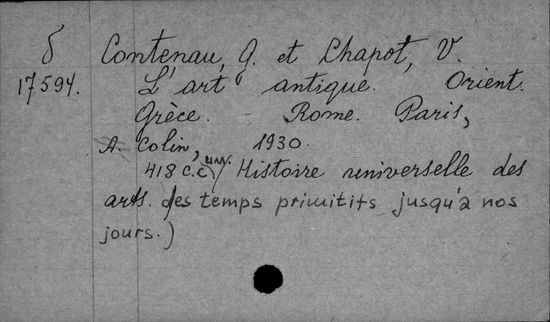 δ Contenau, G. et Chapot, V.
17594. L'art antique. Orient.
Grèce. Rome. Paris,
A. Colin, 1930.
418 c.c Histoire universelle des
arts. des temps primitifs jusqu'à nos
jours.)